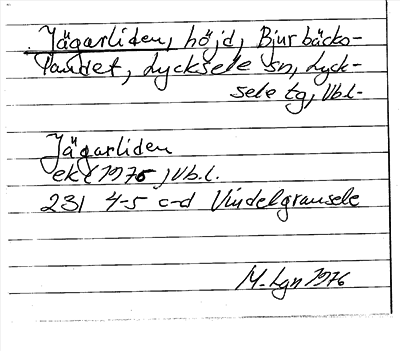 Jägarliden, höjd, Bjurbäcks-
landet, Lycksele sn, Lyck-
sele tg, Vb.l.
Jägarliden
ek (1975) Vb.l.
231 4-5 c-d Vindelgransele
M. Lgn 1976